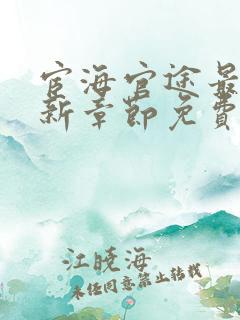 宦海官途最
新章节免费
江晓海
未经同意禁止转载